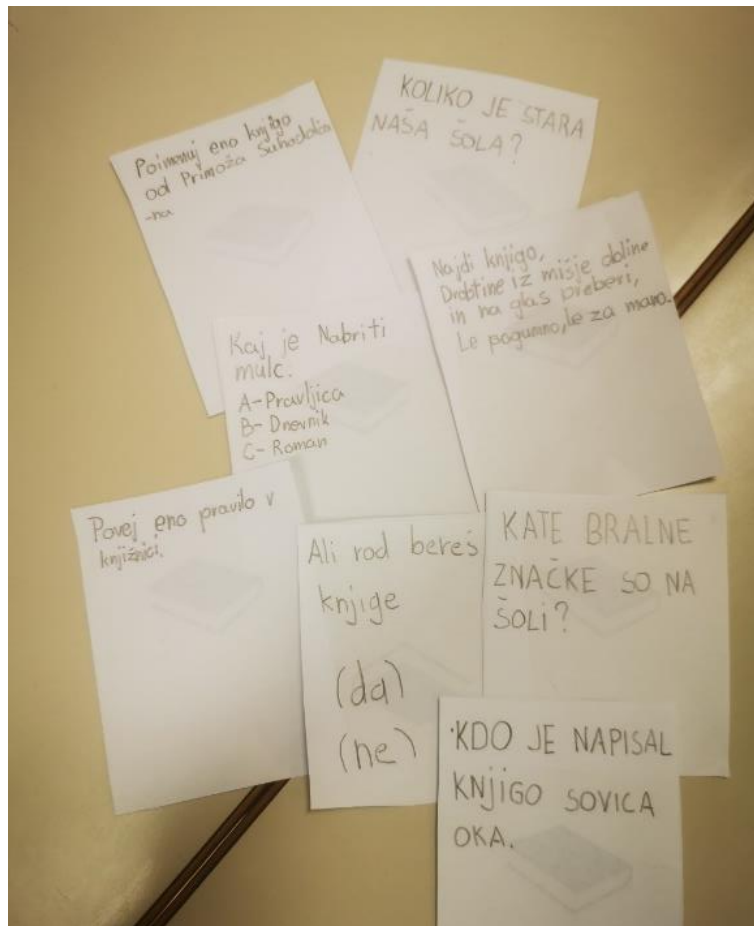 Poimenuj eno knjigo
od Primoža Suhodolča
-na
KOLIKO JE STARA
NAŠA ŠOLA?
Najdi knjigo,
Drobtine iz mišje doline
in na glas preberi,
Le pogumno, le za mano.
Kaj je Nabriti
mulc.
A-Pravljica
B- Dnevnik
C- Roman
Povej eno pravilo v
knjižnici.
Ali rod bereš
knjige
(da)
(ne)
KATE BRALNE
ZNAČKE SO NA
ŠOLI?
KDO JE NAPISAL
KNJIGO SOVICA
OKA.